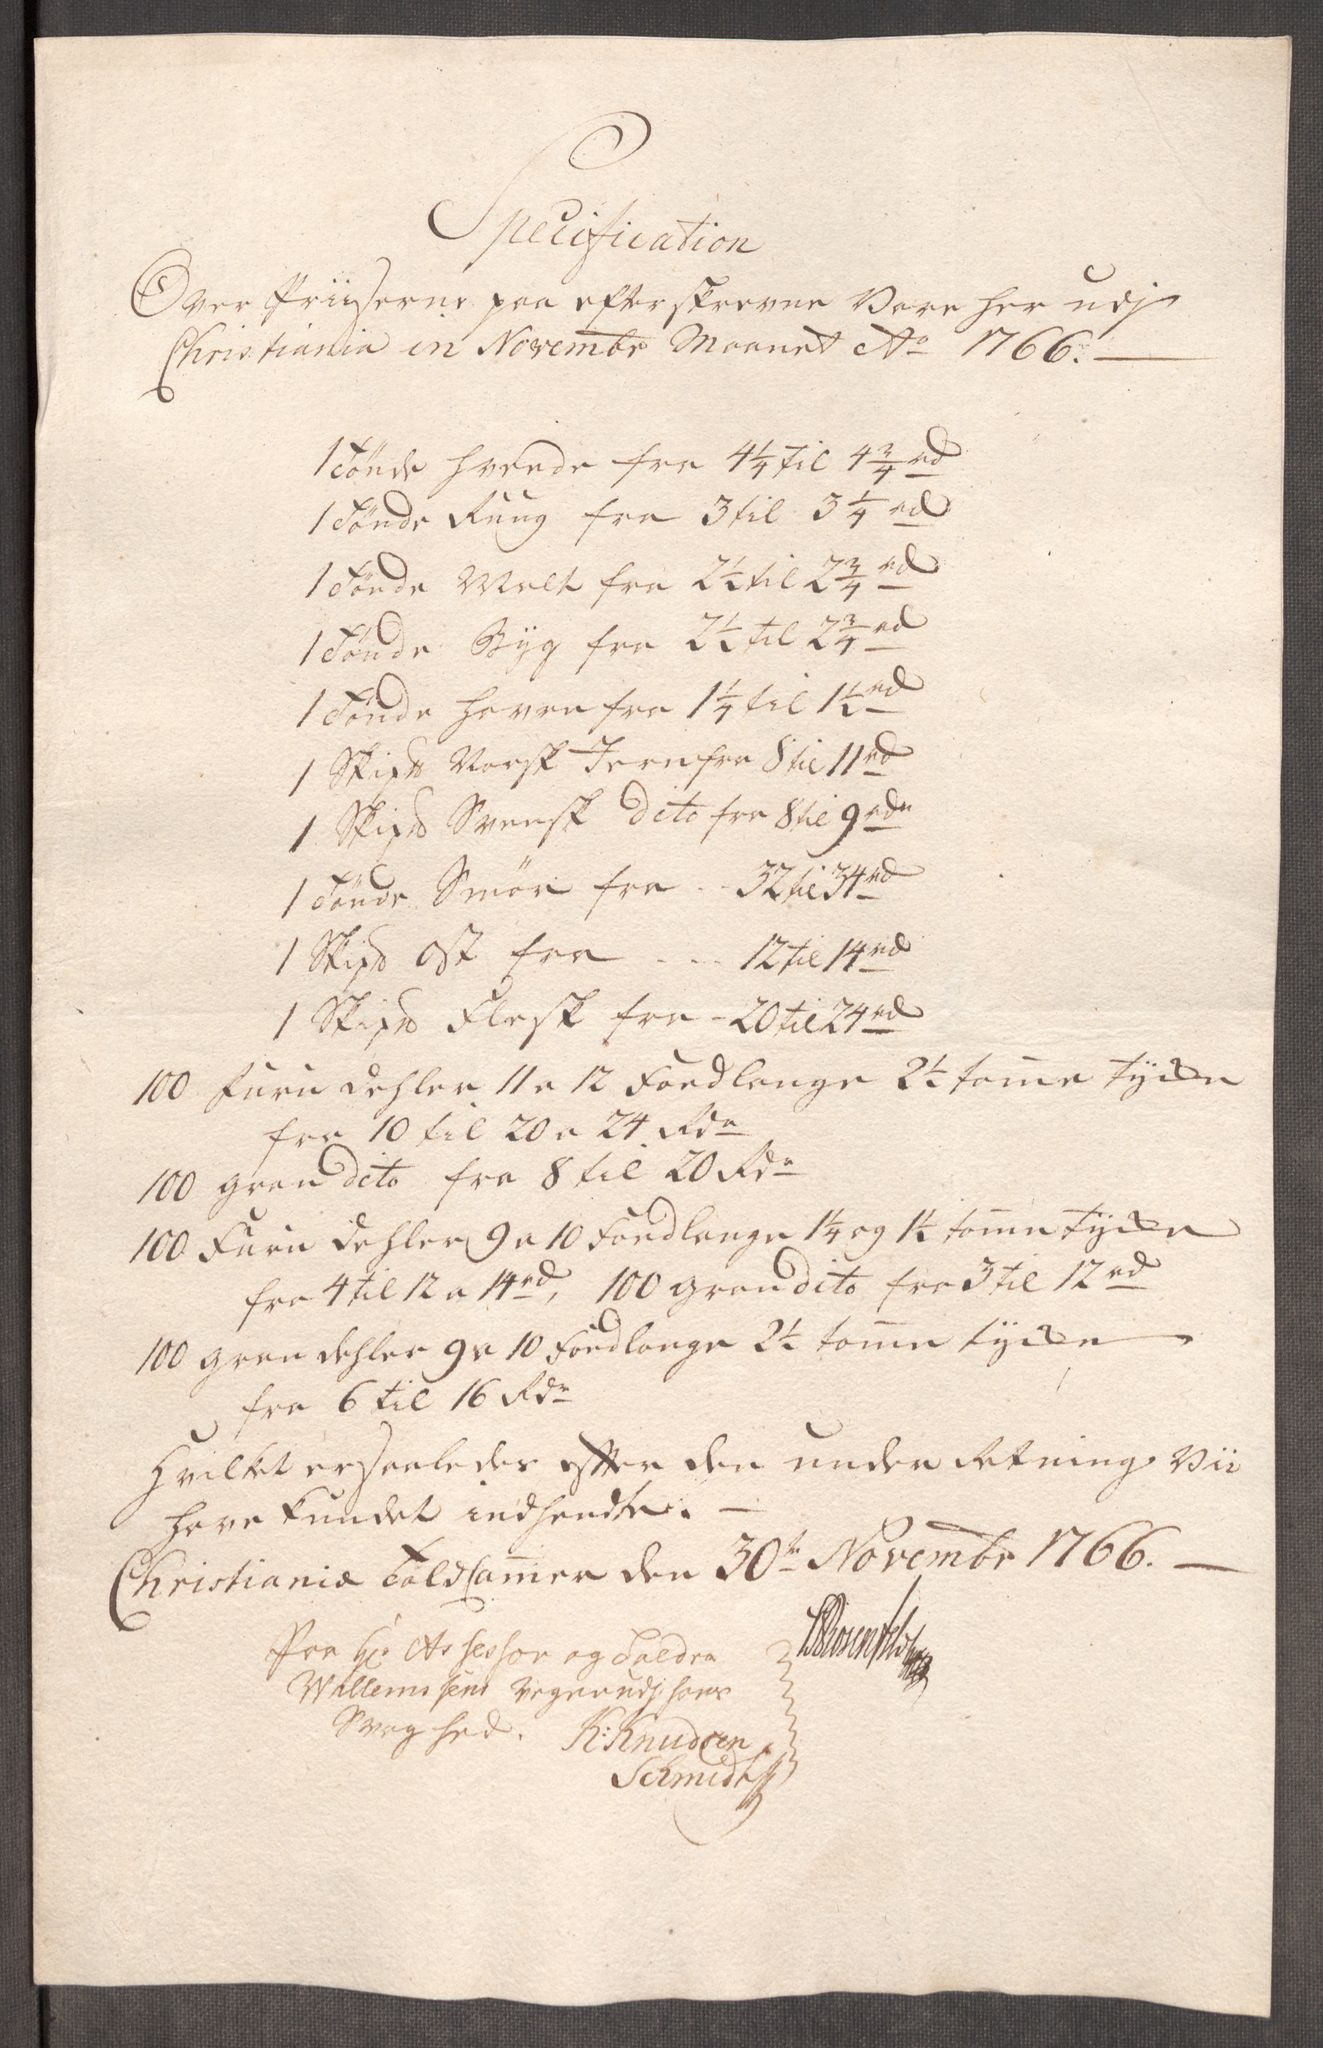 Specification
Over Priiserne paa efterskrevne Vare her udj
Christiania in Novembr Maanet Ao 1766.
1 Tønde Hvede fra 4 1/4 til 4 3/4 rd
1 Tønde Rug fra 3 til 3 1/4 rd
1 Tønde Malt fra 2 1/2 til 2 3/4 rd
1 Tønde Byg fra 2 1/2 til 2 3/4 rd
1 Tønde Havre fra 1 1/4 til 1 1/2 rd
1 Skipd Norsk Jern fra 8 til 11 rd
1 Skipd Svensk dito fra 8 til 9 rdr
1 Tønde Smør fra 32 til 34 rd
1 Skipd Ost fra 12 til 14 rd
1 Skipd Flesk fra 20 til 24 rd
100 Furu dehler 11 a 12 Foed lange 2 1/2 tomme tycke
fra 10 til 20 a 24 Rdr
100 gran dito fra 8 til 20 Rdr
100 Furu dehler 9 a 10 Foed lange 1 1/4 og 1 1/2 tomme tycke
fra 4 til 12 a 14 rd, 100 gran dito fra 3 til 12 rd
100 gran dehler 9 a 10 Foed lange 2 1/2 tomme tycke
fra 6 til 16 Rdr
Hvilket er saaledes efter den underretning Vii
have kundet indhendte.
Christianiæ Toldkammer den 30te Novembr 1766.
Paa Hr Assessor og Tolder
Willemsens vegne udj hans
Svaghed. K: Knudsen
Schmidt